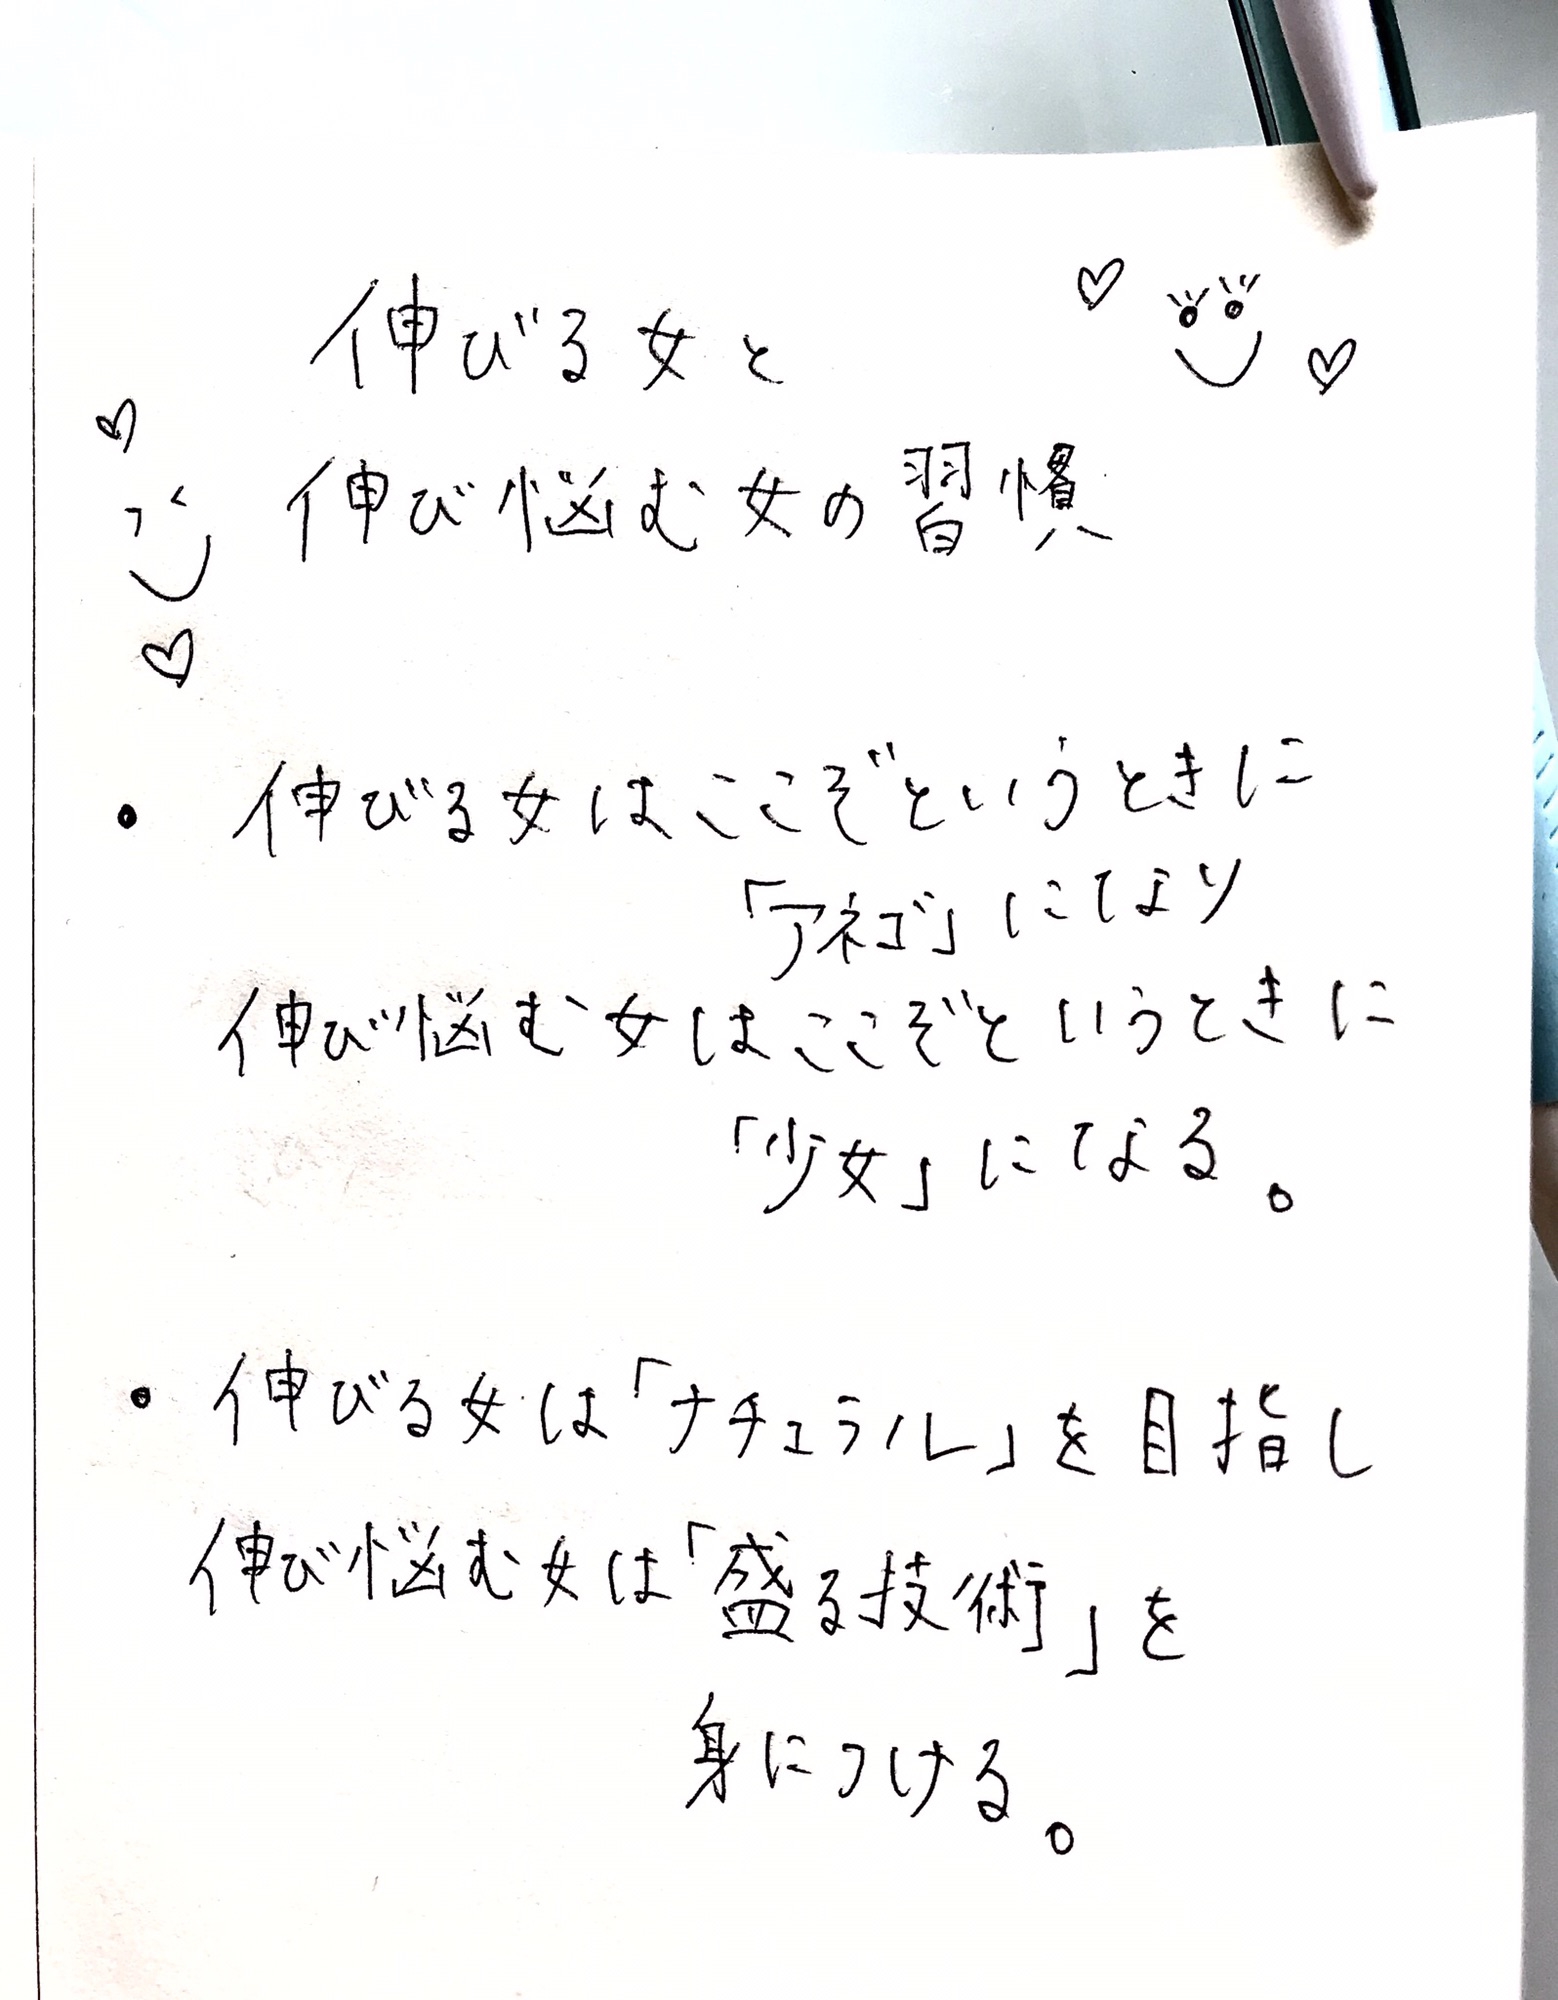 伸びる女と
伸び悩む女の習慣
・伸びる女はここぞというときに
「アネゴ」になり
伸び悩む女はここぞというときに
「少女」になる。
・伸びる女は「ナチュラル」を目指し
伸び悩む女は「盛る技術」を
身につける。